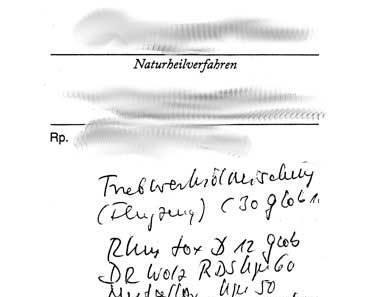 Naturheilverfahren
Rp.
Triebwerksölmischung
(Flugzeug) (30 glob
Rhus tox D 12 glob
DR Wolz RDS 60
50